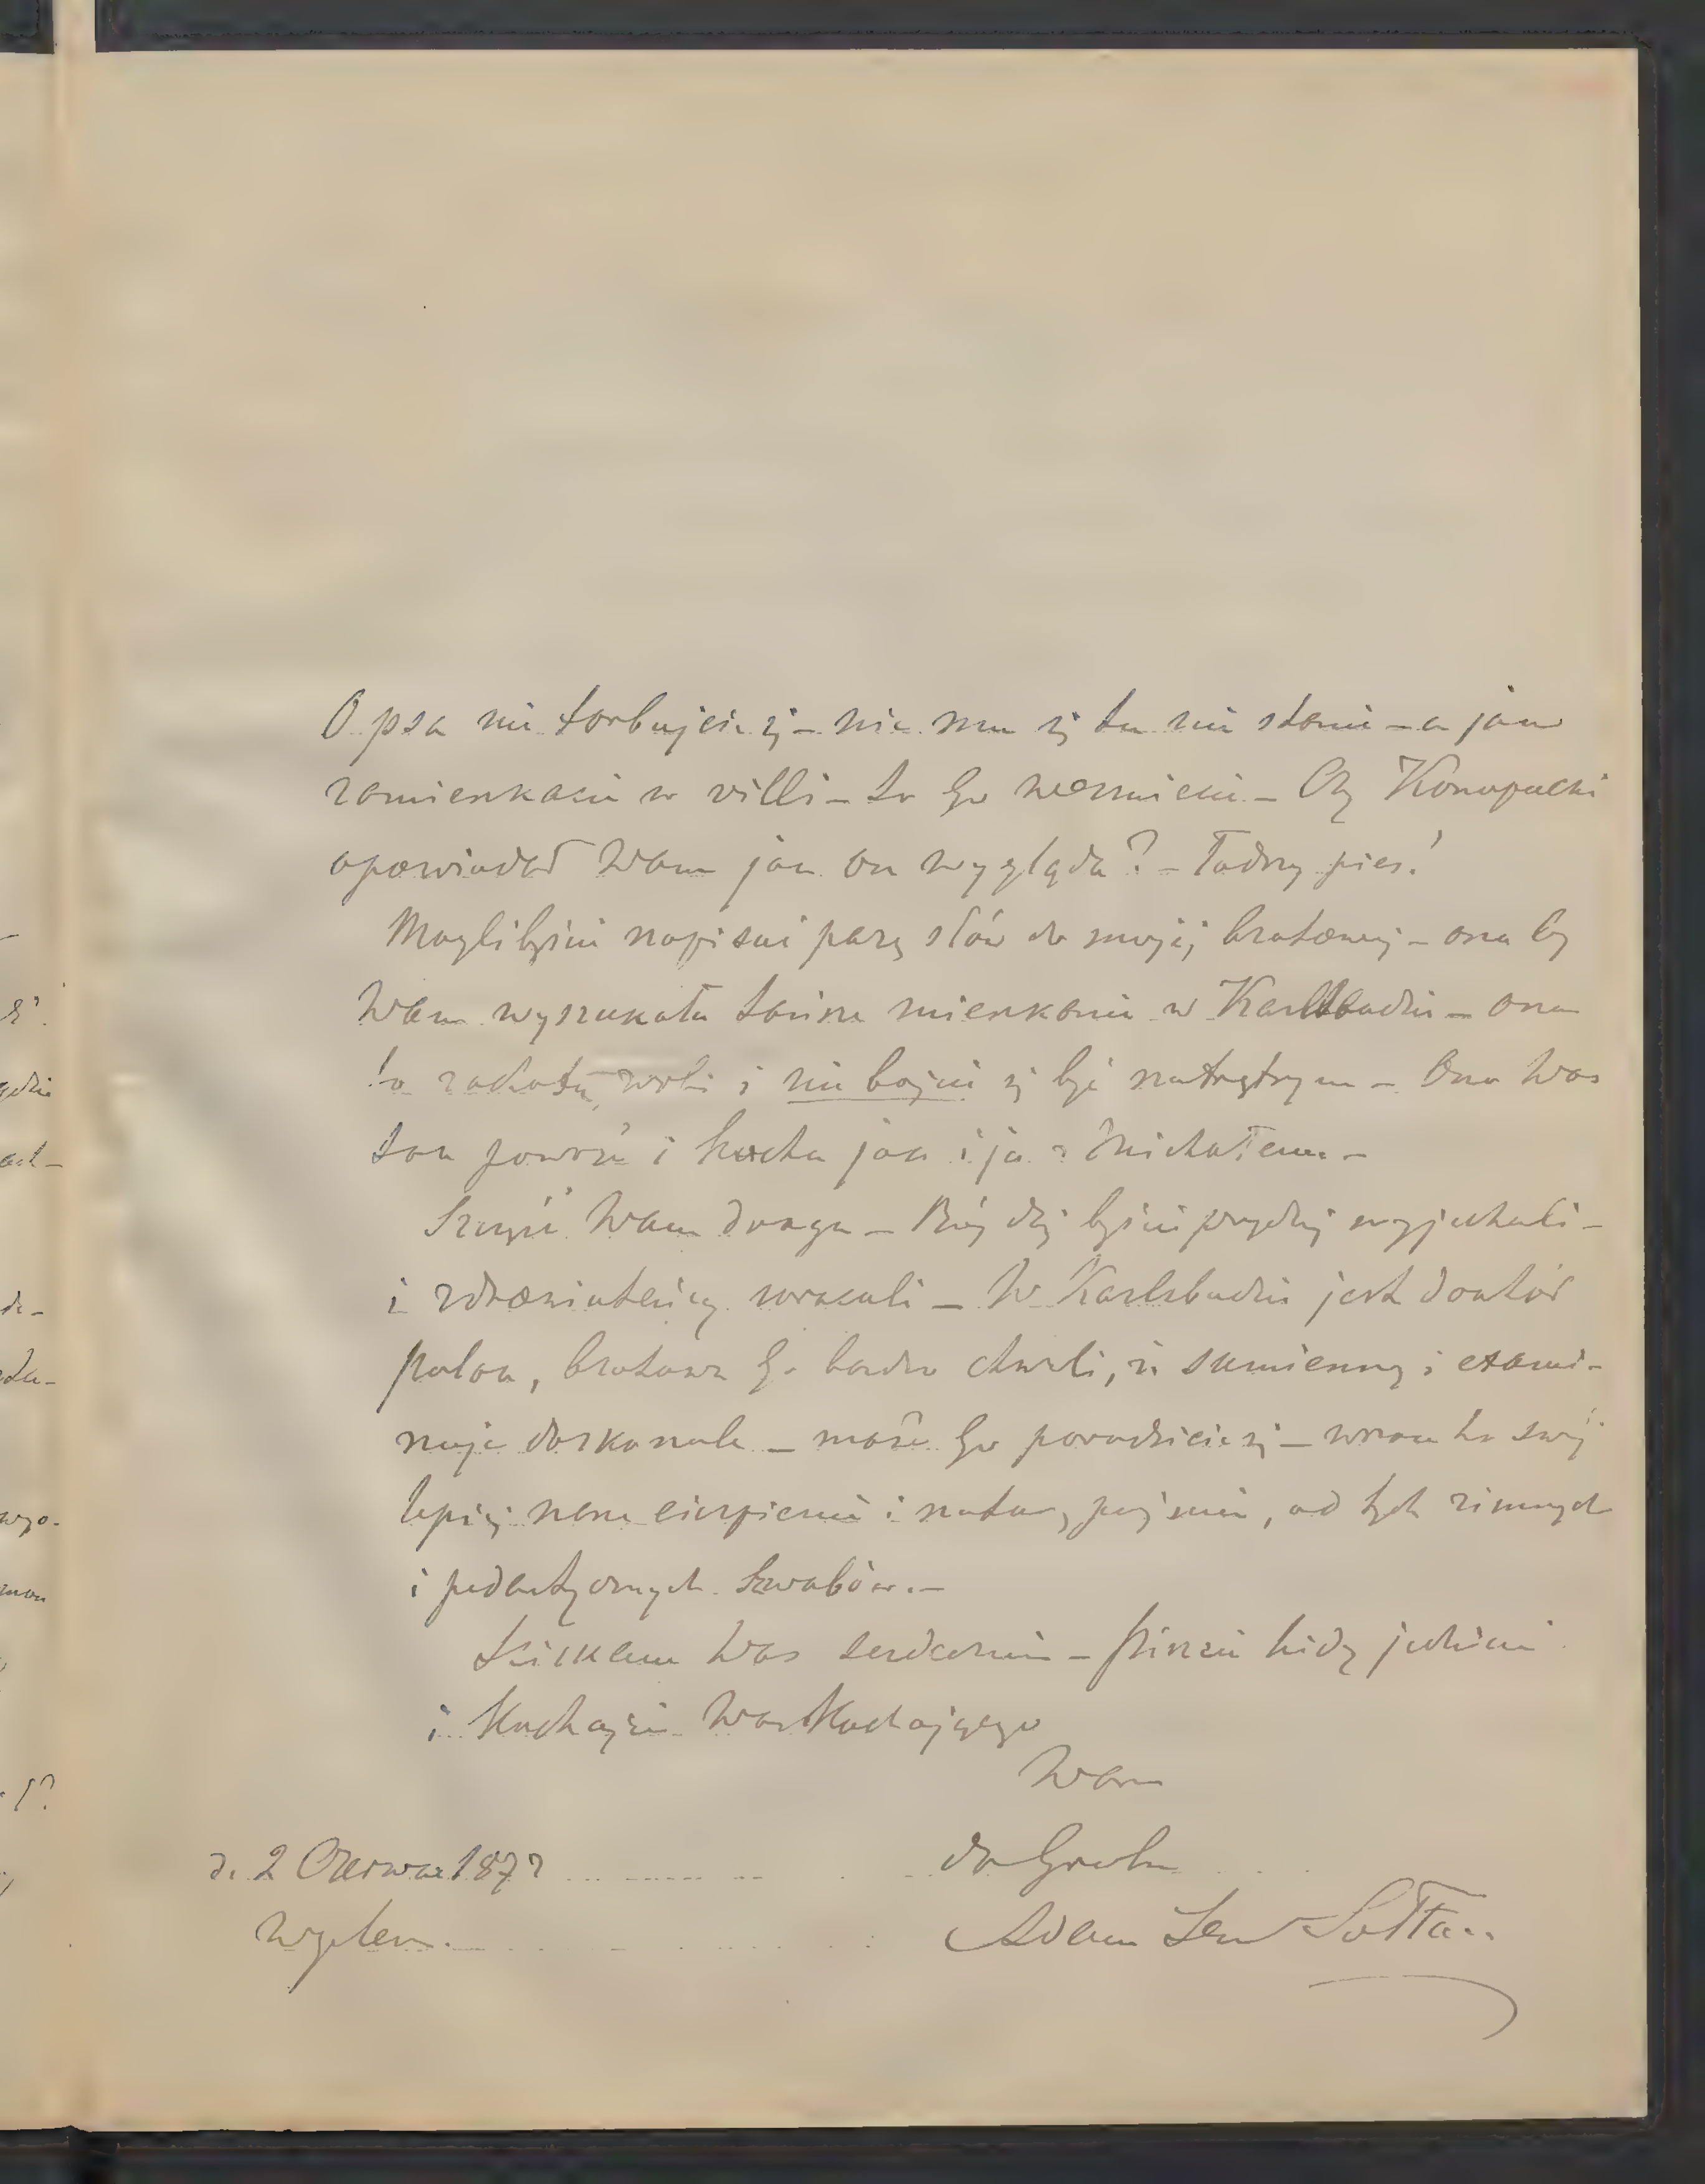 O psa nie turbujcie się – nic mu się tu nie stanie – a jak
zamieszkacie w villi – to Go weźmiecie – Czy Konopacki
opowiadał Wam jak on wygląda? – Ładny pies!
Moglibyście napisać parę słów do mojej bratowej – ona by
Wam wyszukała tańsze mieszkanie w Karlsbadzie – ona
to z ochotą zrobi i nie bójcie się być natrętnym – Ona Was
tak poważa i kocha jak i ja z Michałem –
Szczęść Wam droga – Bóg daj byście prędzej wyjechali –
i zdrowiuteńcy wracali – W Karlsbadzie jest doktór
polak, bratowa Go bardzo chwali, że sumienny i exami-
nuje doskonale – może Go poradzicie się – wszak to swój
lepiej nasze cierpienie i naturę pojmie, od tych zimnych
i pedantycznych Szwabów. –
Ściskam Was serdecznie – piszcie kiedy jedziecie
i Kochajcie Was Kochającego
Wam
do Grobu
Adam Lew Sołtan
d. 2 Czerwca 187